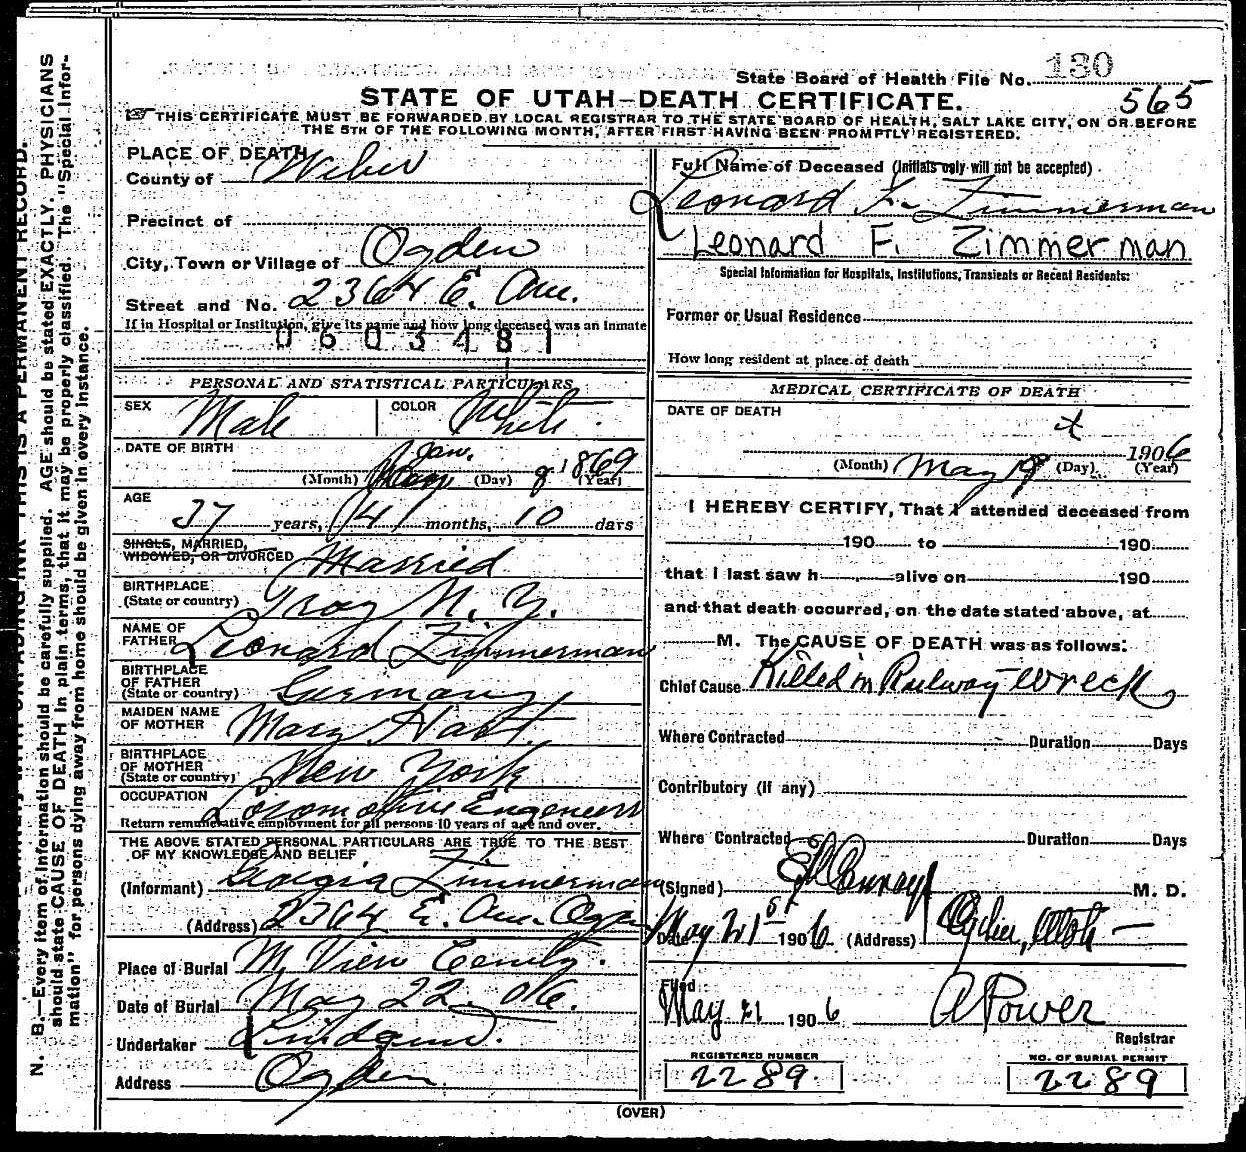 State Board of Health File No. 130
STATE OF UTAH-DEATH CERTIFICATE. 565
THIS CERTIFICATE MUST BE FORWARDED BY LOCAL REGISTRAR TO THE STATE BOARD OF HEALTH, SALT LAKE CITY, ON OR BEFORE
THE 5TH OF THE FOLLOWING MONTH, AFTER FIRST HAVING BEEN PROMPTLY REGISTERED.
PLACE OF DEATH
County of Weber
Precinct of
City, Town or Village of Ogden
Street and No. 2364 E. Ave.
If in Hospital or Institution, give its name and how long deceased was an inmate
0603481
PERSONAL AND STATISTICAL PARTICULARS
SEX Male COLOR White
DATE OF BIRTH Jan. 8 1869
(Month) (Day) (Year)
AGE 37 years, 4 months, 10 days
SINGLE, MARRIED,
WIDOWED, OR DIVORCED Married
BIRTHPLACE
(State or country) Troy N. Y.
NAME OF
FATHER Leonard Zimmerman
BIRTHPLACE
OF FATHER
(State or country) Germany
MAIDEN NAME
OF MOTHER Mary Hart
BIRTHPLACE
OF MOTHER
(State or country) New York
OCCUPATION Locomotive Engeneer
Return remunerative employment for all persons 10 years of age and over.
THE ABOVE STATED PERSONAL PARTICULARS ARE TRUE TO THE BEST
OF MY KNOWLEDGE AND BELIEF
(Informant) Georgia Zimmerman
(Address) 2364 E. Ave. Ogden
Place of Burial M. View Cemty.
Date of Burial May 22 - 06.
Undertaker
Address Ogden
Full Name of Deceased (Initials only will not be accepted)
Leonard F. Zimmerman
Leonard F. Zimmerman
Special Information for Hospitals, Institutions, Transients or Recent Residents:
Former or Usual Residence
How long resident at place of death
MEDICAL CERTIFICATE OF DEATH
DATE OF DEATH
1906
(Month) May (Day) (Year)
I HEREBY CERTIFY, That I attended deceased from
190 to 190
that I last saw h alive on 190
and that death occurred, on the date stated above, at
M. The CAUSE OF DEATH was as follows:
Chief Cause Killed in Railway Wreck
Where Contracted Duration Days
Contributory (if any)
Where Contracted Duration Days
(Signed) M. D.
Date May 21st 1906 (Address) Ogden, Utah
Filed
May 21 1906 A Power
Registrar
REGISTERED NUMBER
2289
NO. OF BURIAL PERMIT
2289
(OVER)
N. B.—Every item of information should be carefully supplied. AGE should be stated EXACTLY. PHYSICIANS
should state CAUSE OF DEATH in plain terms, that it may be properly classified. The "Special Infor-
mation" for persons dying away from home should be given in every instance.
THIS IS A PERMANENT RECORD.